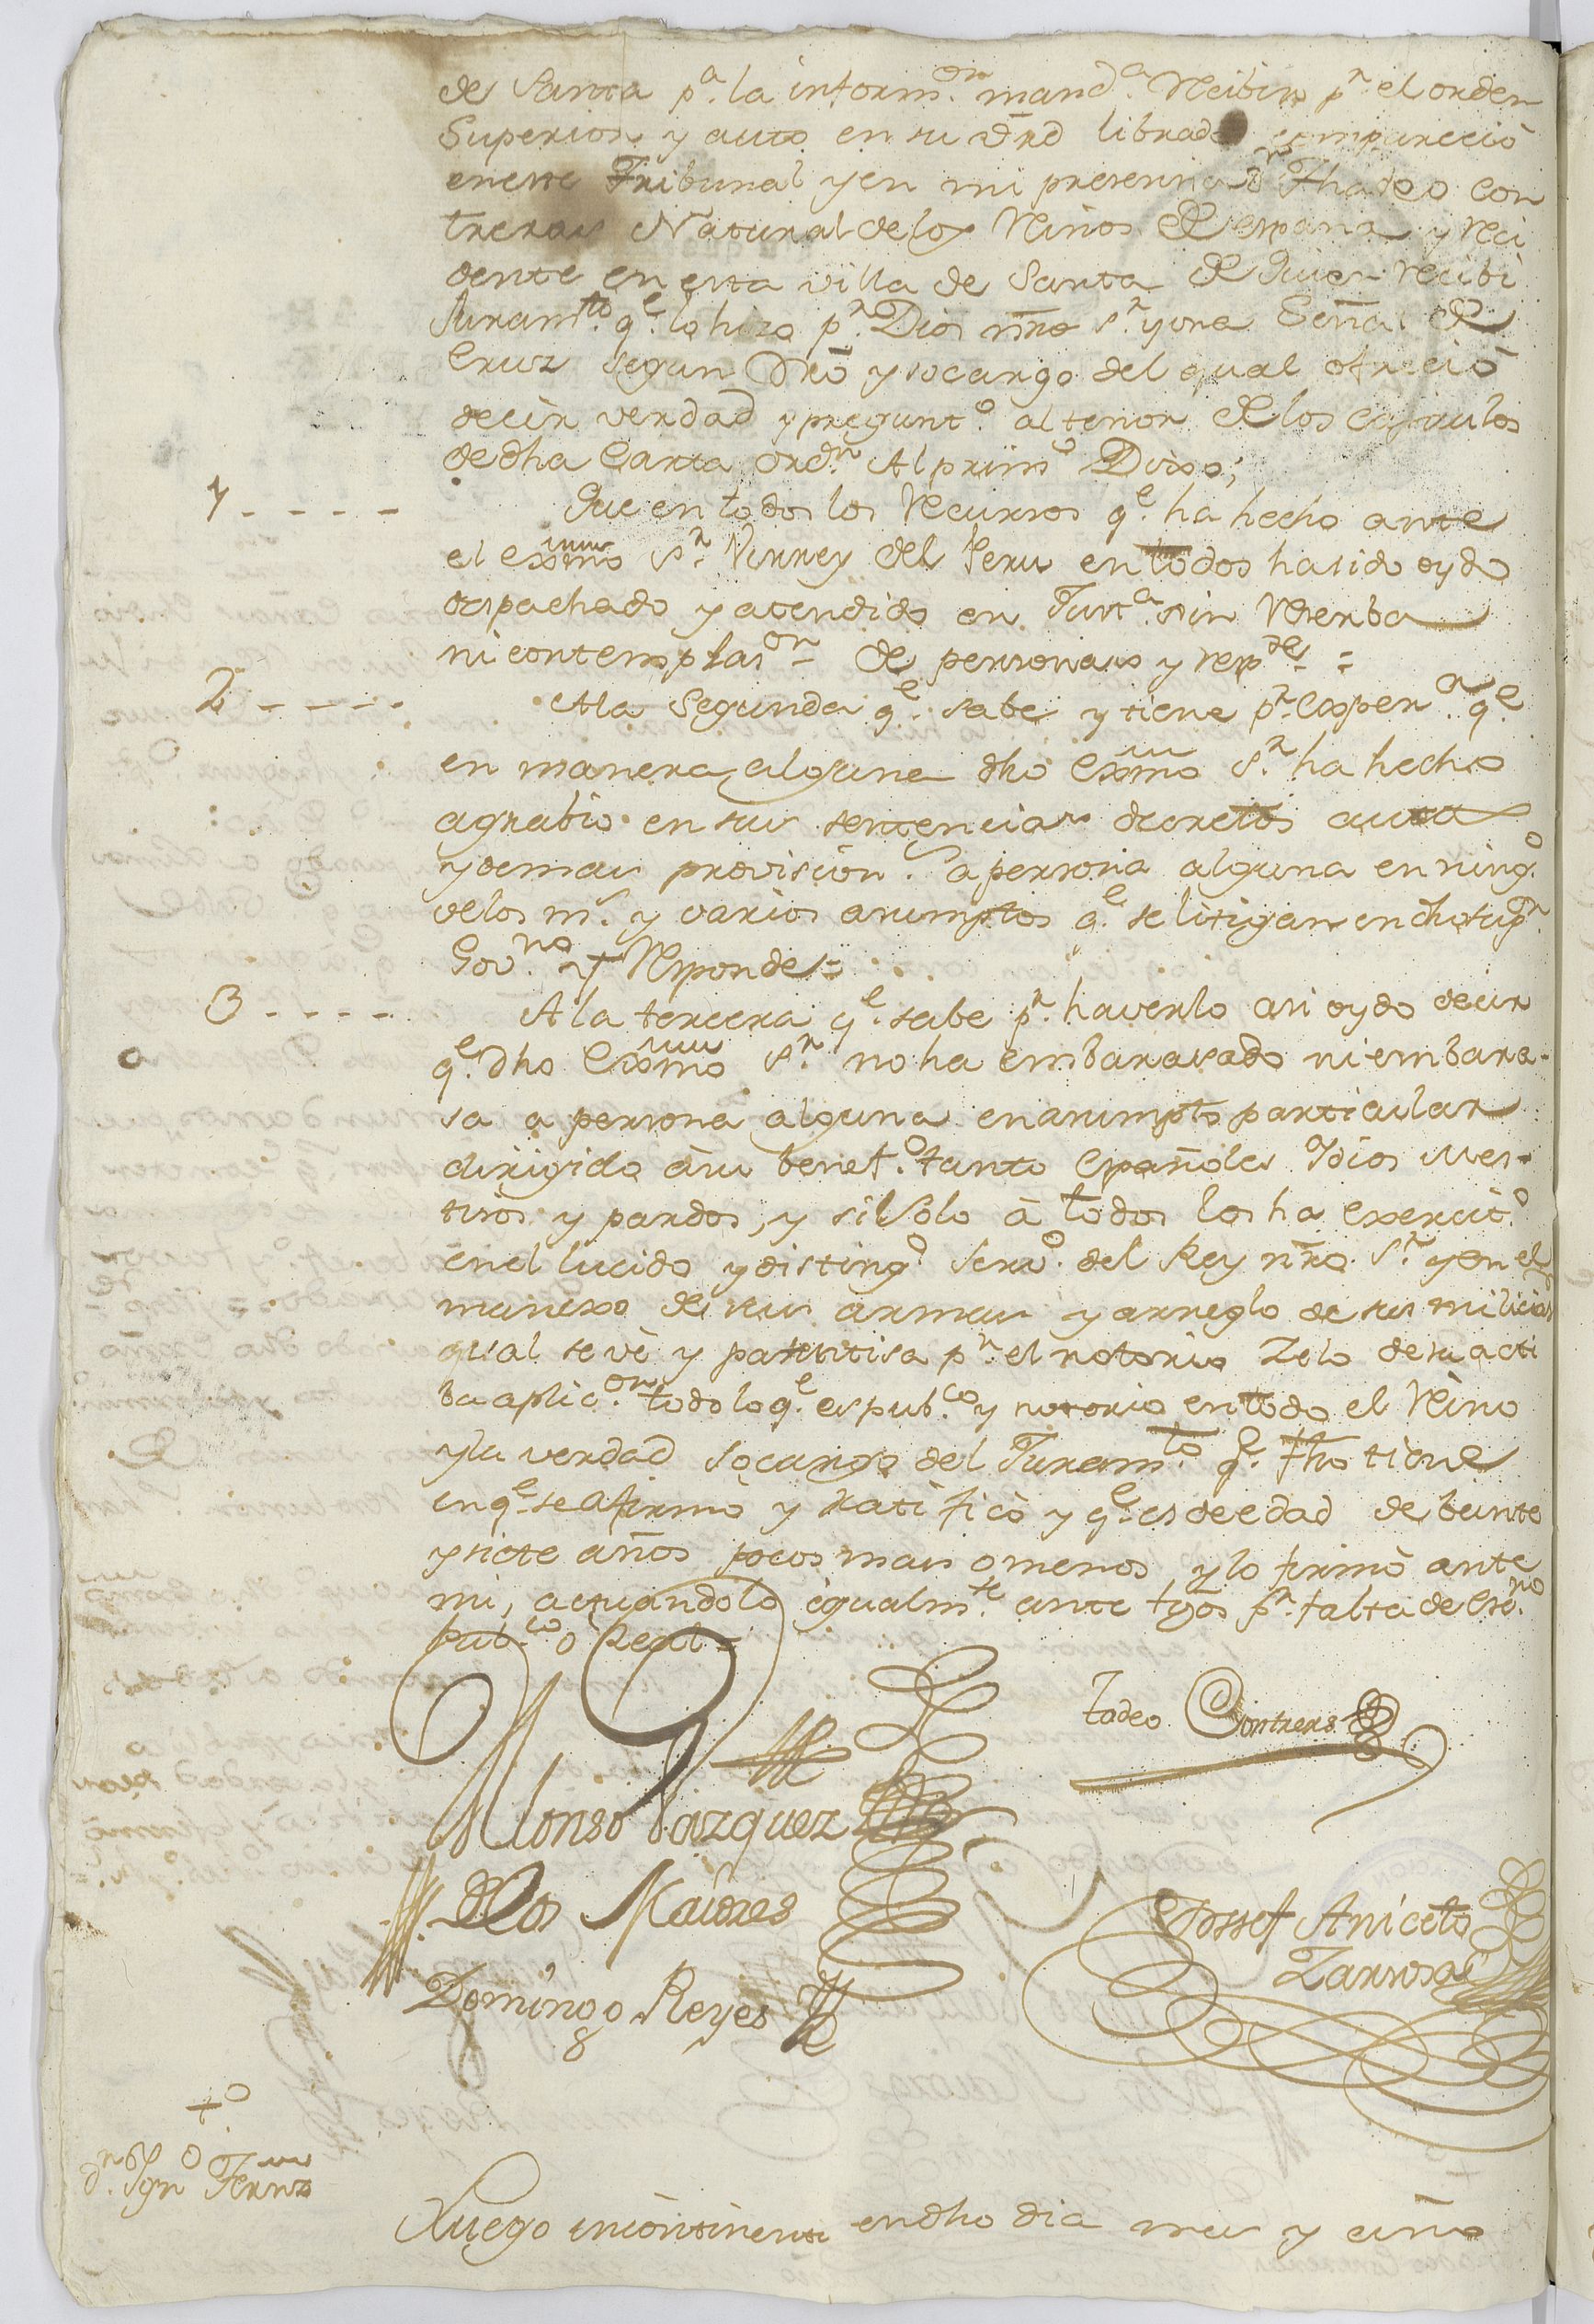 de Santa p.ª la inform.on mand.ª Recibir p.r el orden
Superior y auto en su Vrd librado comparecio
en este Tribunal y en mi presencia Dn Thadeo Con
treras Natural de los Reinos de españa y Reci
dente en esta villa de Santa de quien Recibi
Juram.to q.e lo hizo p.r Dios nro S.r y una Señal de
Cruz segun Dro y so cargo del qual ofrecio
decir verdad y pregunt.o al tenor de los capitulos
de dha Carta ordn Al prim.o Dixo;
1 - - - - Que en todos los Recursos q.e ha hecho ante
el exmo S.r Virrey del Peru en todos ha sido oydo
despachado y atendido en Just.a sin Reserba
ni contemplas.on de personas y resp.des =
2 - - - - A la Segunda q.e sabe y tiene p.r experª q.e
en manera alguna dho Exmo S.r ha hecho
agrabio en sus sentencias decretos autos
y demas provision.s a persona alguna en ning.o
de los m.s y varios asumptos q.e se litigan en dho sup.r
Gov.no y Responde =
3 - - - - A la tercera q.e sabe p.r haverlo asi oydo decir
q.e dho Exmo S.r no ha embarasado ni embara-
sa a persona alguna en asumpto particular
dirigido à su benef.o tanto españoles Ydios mes-
tisos y pardos, y si solo à todos los ha exercit.o
en el lucido y disting.o serv.o del Rey nro S.r y en el
manexo de sus armas y arreglo de sus milicias
qual se vè y patentisa p.r el notorio Zelo de su acti
ba aplic.on todo lo q.e es pub.co y notorio en todo el Reino
y la verdad so cargo del Juram.to q.e fho tiene
en q.e se afirmò y ratificò y q.e es de edad de beinte
y siete años pocos mas o menos, y lo firmò ante
mi, actuandolo igualm.te ante tgos p.r falta de Esc.no
Pub.co ò Real =
Tadeo Contreras
Alonso Vazquez
de los
Jossef Aniceto
Domingo Reyes
t.o
d.n Ygn.o Fernz
Luego incontinente en dho dia mes y año